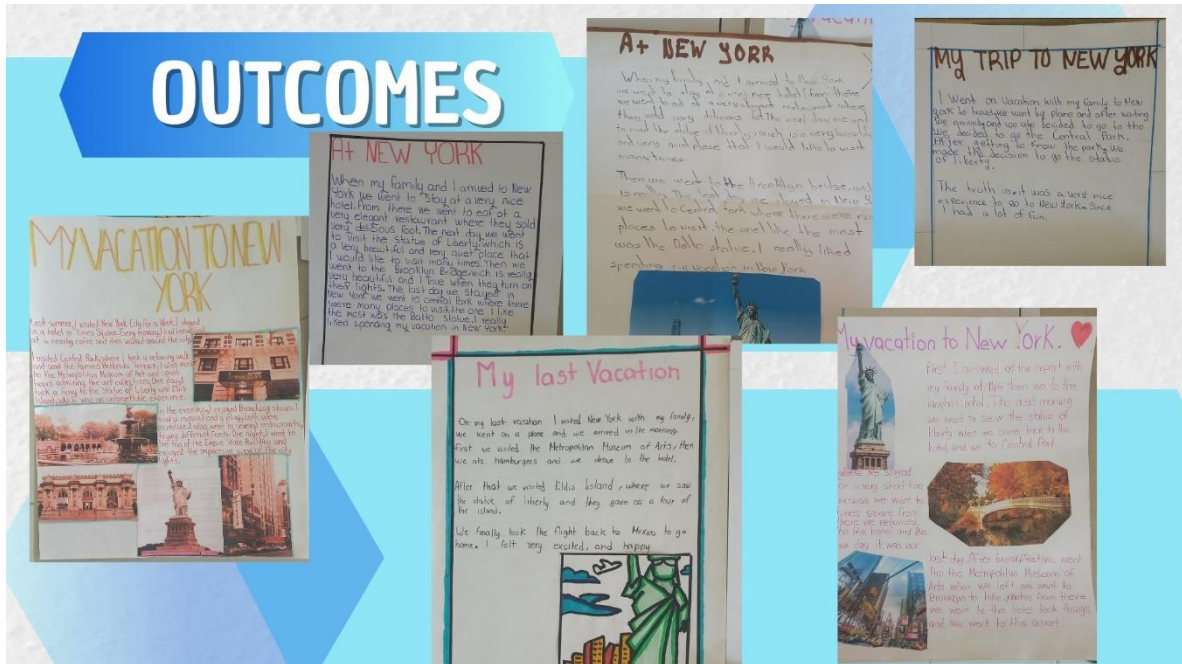 OUTCOMES
MY VACATION TO NEW
YORK
Last summer, I visited New York City for a Week. I stayed
in a hotel in Times Square. Every morning I had breakfast
at a nearby cafes and then walked around the city.
I visited Central Park where I took a relaxing walk
and saw the famous Bethesda Terrace. I also went
to the Metropolitan Museum of Art and spent
hours admiring the art collections. One day I
took a ferry to the Statue of Liberty and Ellis
Island, which was an unforgettable experience.
In the evening I enjoyed Broadway shows. I
also went to several restaurants
trying different foods. One night, I went to
the top of the Empire State Building and
enjoyed the impressive view of the city
lights.
A+ NEW YORK
When my family and I arrived to New
York we went to stay at a very nice
hotel. From there we went to eat at a
very elegant restaurant where they sold
very delicious foot. The next day we went
to visit the Statue of Liberty, which is
a very beautiful and very quiet place that
I would like to visit many times. Then we
went to the Brooklyn Bridge, wich is really
very beautiful and I love when they turn on
their lights. The last day we stayed in
New York we went to central Park where there
were many places to visit the one I like
the most was the Balto statue. I really
liked spending my vacation in New York.
A+ NEW YORK
When my family and I arrived to New York
we went to stay at a very nice hotel from there
we went to eat at a very elegant restaurant where
they sold very delicious The next day we went
to visit the statue of liberty, which is a very beautiful
and very quiet place that I would like to visit
many times.
Then we went to the Brooklyn bridge,
is really The last day we stayed in New
we went to Central York where there were
places to visit the one I like the most
was the Balto statue. I really liked
spending my vacation in New York
MY TRIP TO NEW YORK
I Went on Vacation with my family to New
york to travel, we went by plane and after waiting
we arrived, and we ate decided to go to the
we decided to go the Central Park.
After getting to know the park, we
made the decision to go the status
of liberty.
The truth is, it was a very nice
experience to go to New York. Since
I had a lot of fun.
My last Vacation
On my last vacation I visited New York with my family,
we went on a plane and we arrived in the morning.
first we visited the Metropolitan Museum of Arts, then
we ate hamburgers and we drove to the hotel.
After that we visited Ellis Island, where we saw
the statue of liberty and they gave as a tour of
the island.
We finally took the flight back to Mexico to go
home. I felt very excited, and happy
My vacation to New York.
First I arrived at the airport with
my family at 11pm then we to the
hotel. The next morning
we went to see the statue of
liberty when we came back to the
hotel and we to Central Park.
where we stayed
for a very short time
because we went to
times square from
there we returned
to the hotel and the
day it was our
last day. After breakfast we went
tho the Metropolitan Museum of
Arts when we left we went to
Brooklyn to take photos from there
we went to the hotel took things
and we went to the airport.